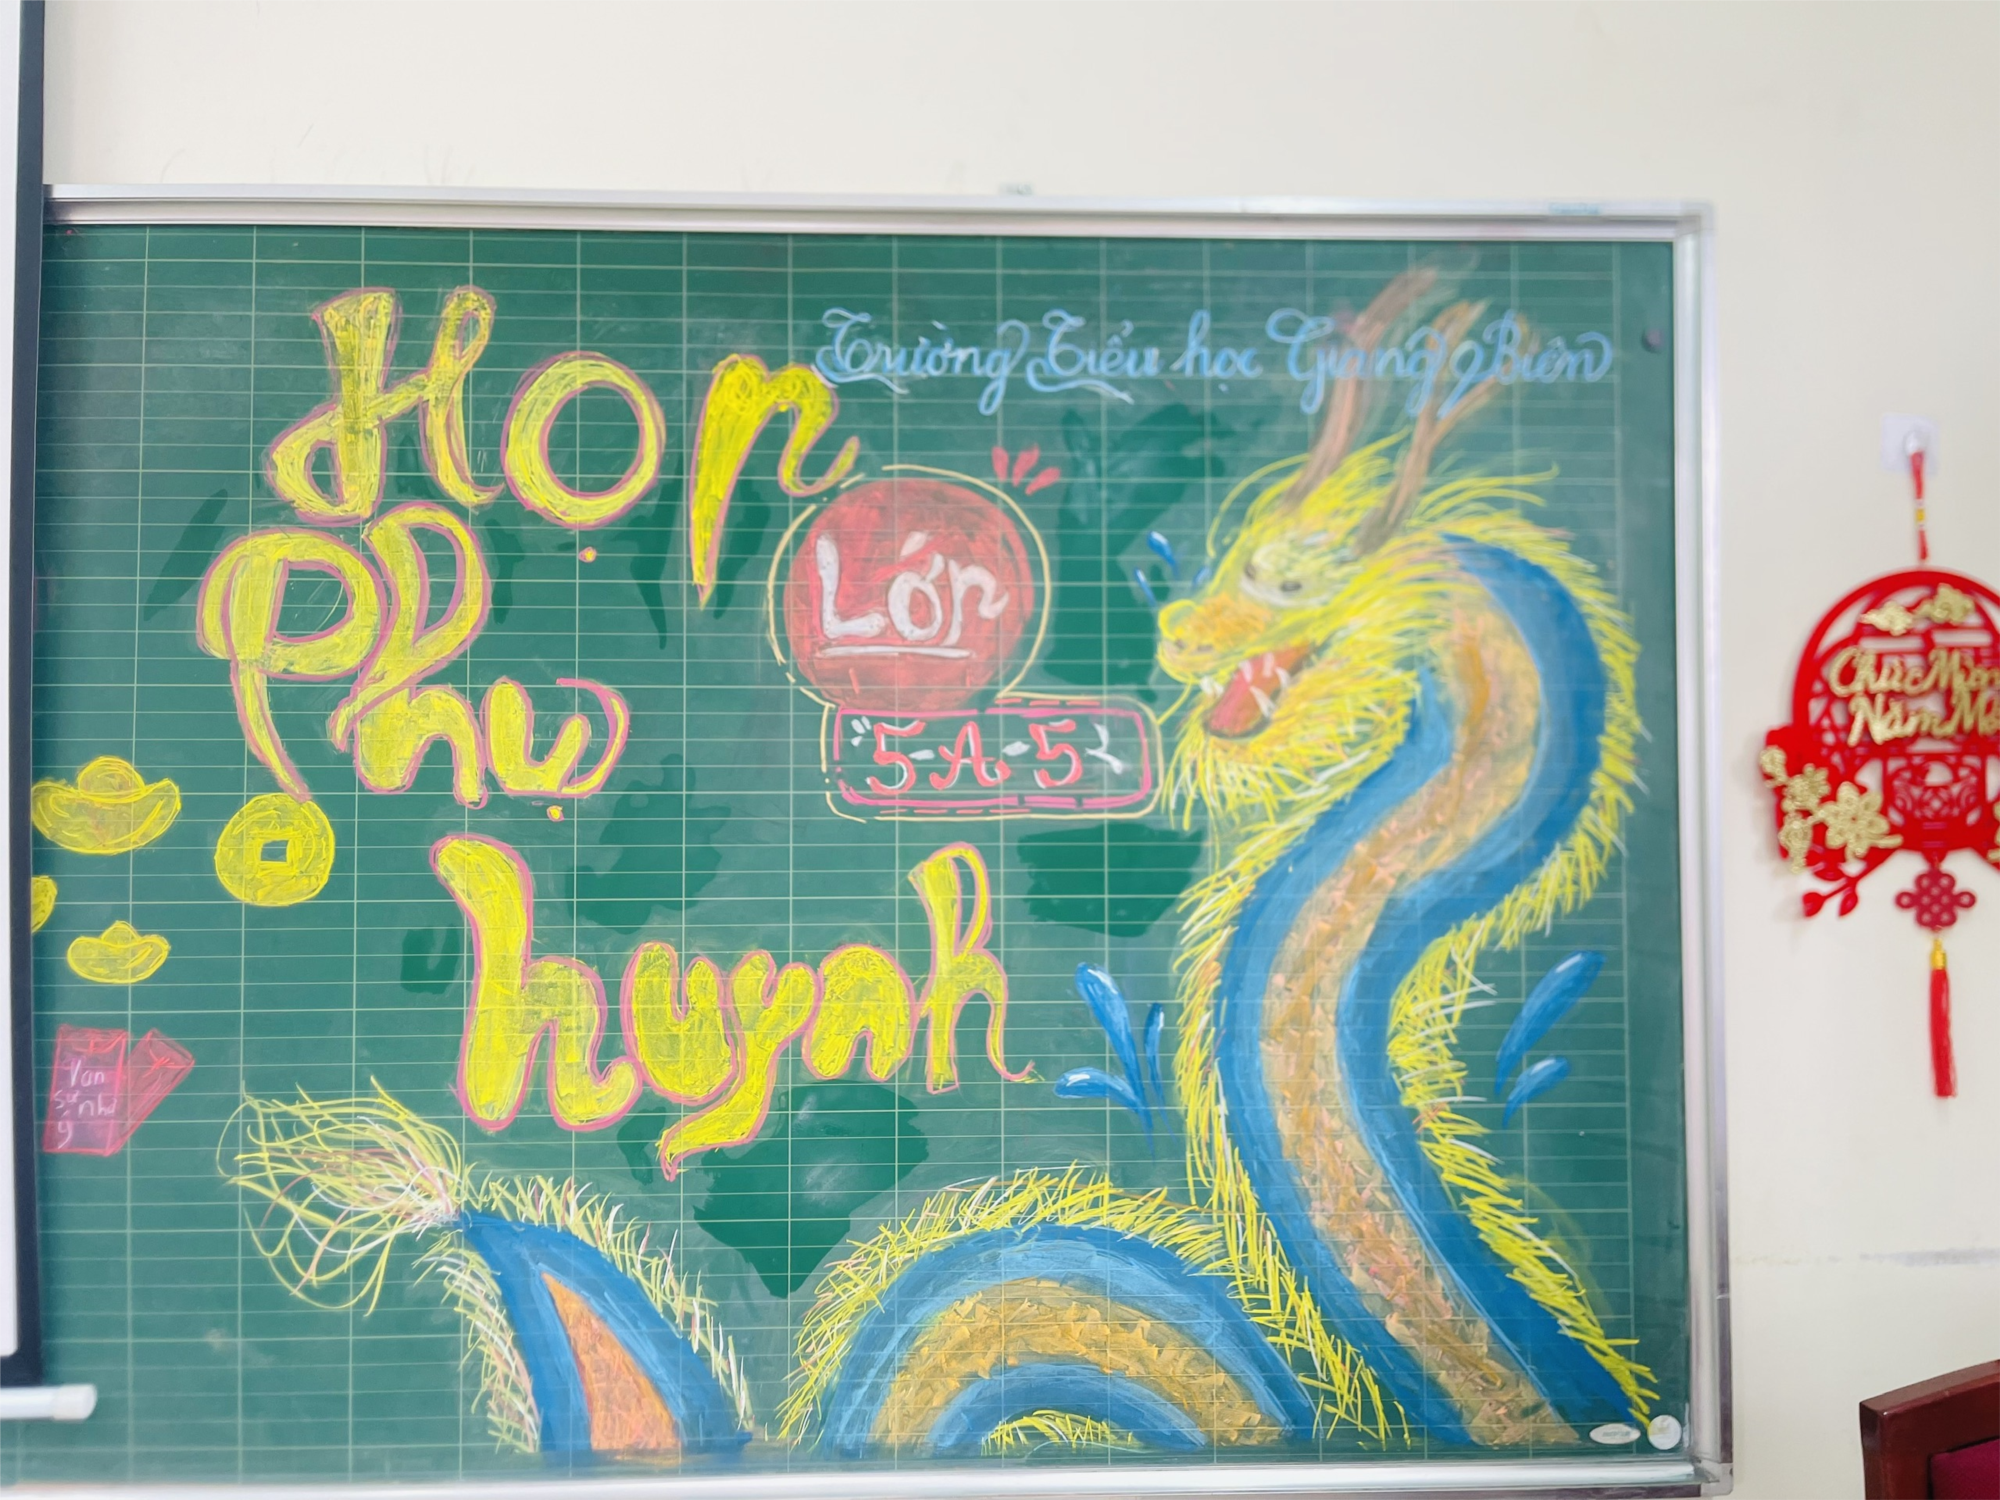 Trường Tiểu học Giang Biên
Họp
Phụ
huynh
Lớp
5-A-5
Vạn
sự như
ý
Chúc Mừn
Năm Mớ